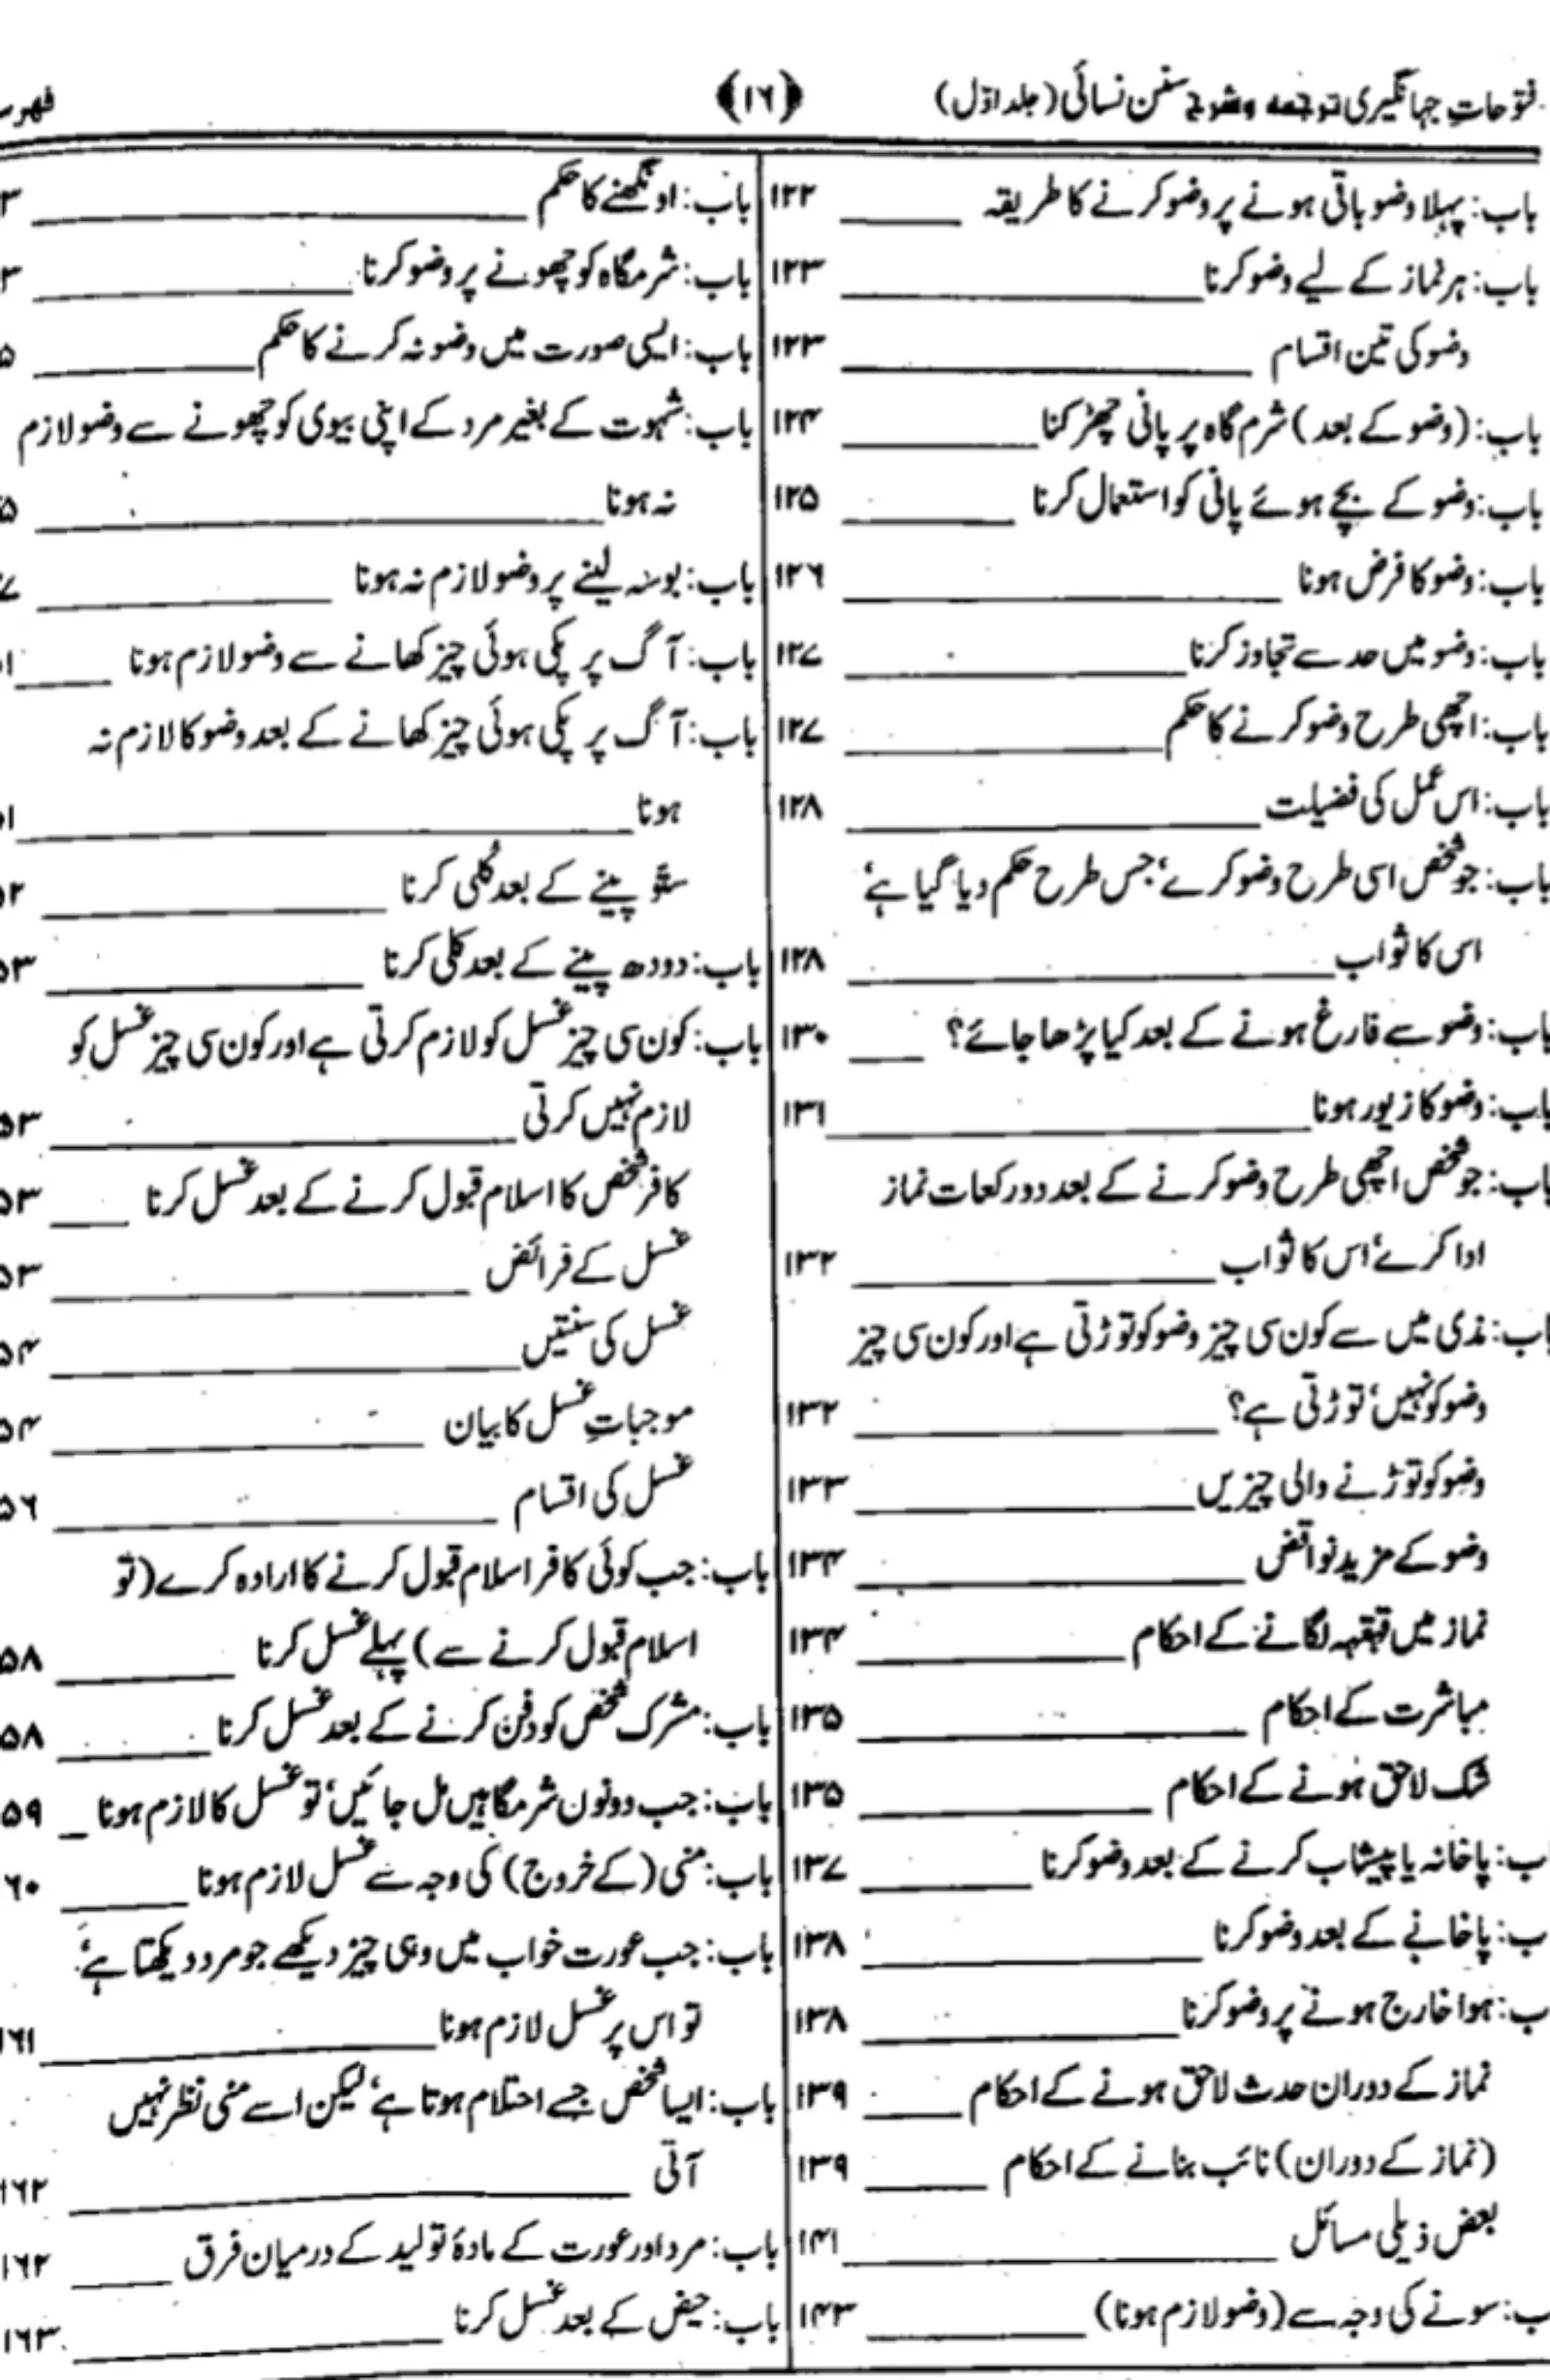 فتوحاتِ جہانگیری ترجمه وشرح سنن نسائی (جلد اوّل)
﴿۱۶﴾
باب: پہلا وضو باقی ہونے پر وضو کرنے کا طریقہ ۱۲۲
باب: ہر نماز کے لیے وضو کرنا ۱۲۳
وضو کی تین اقسام ۱۲۳
باب: (وضو کے بعد) شرم گاہ پر پانی چھڑکنا ۱۲۴
باب: وضو کے بچے ہوئے پانی کو استعمال کرنا ۱۲۵
باب: وضو کا فرض ہونا ۱۲۶
باب: وضو میں حد سے تجاوز کرنا ۱۲۷
باب: اچھی طرح وضو کرنے کا حکم ۱۲۷
باب: اس عمل کی فضیلت ۱۲۸
باب: جو شخص اسی طرح وضو کرے، جس طرح حکم دیا گیا ہے،
اس کا ثواب ۱۲۸
باب: وضو سے فارغ ہونے کے بعد کیا پڑھا جائے؟ ۱۳۰
باب: وضو کا زیور ہونا ۱۳۱
باب: جو شخص اچھی طرح وضو کرنے کے بعد دو رکعات نماز
ادا کرے، اس کا ثواب ۱۳۲
باب: مذی میں سے کون سی چیز وضو کو توڑتی ہے اور کون سی چیز
وضو کو نہیں، توڑتی ہے؟ ۱۳۲
وضو کو توڑنے والی چیزیں ۱۳۳
وضو کے مزید نواقض ۱۳۴
نماز میں قہقہہ لگانے کے احکام ۱۳۴
مباشرت کے احکام ۱۳۵
شک لاحق ہونے کے احکام ۱۳۵
ب: پاخانہ یا پیشاب کرنے کے بعد وضو کرنا ۱۳۷
ب: پاخانے کے بعد وضو کرنا ۱۳۸
ب: ہوا خارج ہونے پر وضو کرنا ۱۳۸
نماز کے دوران حدث لاحق ہونے کے احکام ۱۳۹
(نماز کے دوران) نائب بنانے کے احکام ۱۳۹
بعض ذیلی مسائل ۱۴۱
ب: سونے کی وجہ سے (وضو لازم ہونا) ۱۴۳
باب: اونگھنے کا حکم ۳
باب: شرمگاہ کو چھونے پر وضو کرنا ۳
باب: ایسی صورت میں وضو نہ کرنے کا حکم ۵
باب: شہوت کے بغیر مرد کے اپنی بیوی کو چھونے سے وضو لازم
نہ ہونا ۵
باب: بوسہ لینے پر وضو لازم نہ ہونا ۷
باب: آگ پر پکی ہوئی چیز کھانے سے وضو لازم ہونا
باب: آگ پر پکی ہوئی چیز کھانے کے بعد وضو کا لازم نہ
ہونا
ستّو پینے کے بعد کُلی کرنا ۵۲
باب: دودھ پینے کے بعد کلی کرنا ۵۳
باب: کون سی چیز غسل کو لازم کرتی ہے اور کون سی چیز غسل کو
لازم نہیں کرتی ۵۳
کافر شخص کا اسلام قبول کرنے کے بعد غسل کرنا ۵۳
غسل کے فرائض ۵۳
غسل کی سنتیں ۵۴
موجباتِ غسل کا بیان ۵۴
غسل کی اقسام ۵۶
باب: جب کوئی کافر اسلام قبول کرنے کا ارادہ کرے (تو
اسلام قبول کرنے سے) پہلے غسل کرنا ۵۸
باب: مشرک شخص کو دفن کرنے کے بعد غسل کرنا ۵۸
باب: جب دونوں شرمگاہیں مل جائیں، تو غسل کا لازم ہونا ۵۹
باب: منی (کے خروج) کی وجہ سے غسل لازم ہونا ۶۰
باب: جب عورت خواب میں وہی چیز دیکھے جو مرد دیکھتا ہے،
تو اس پر غسل لازم ہونا ۱۶۱
باب: ایسا شخص جسے احتلام ہوتا ہے، لیکن اسے منی نظر نہیں
آتی ۱۶۲
باب: مرد اور عورت کے مادۂ تولید کے درمیان فرق ۱۶۲
باب: حیض کے بعد غسل کرنا ۱۶۳